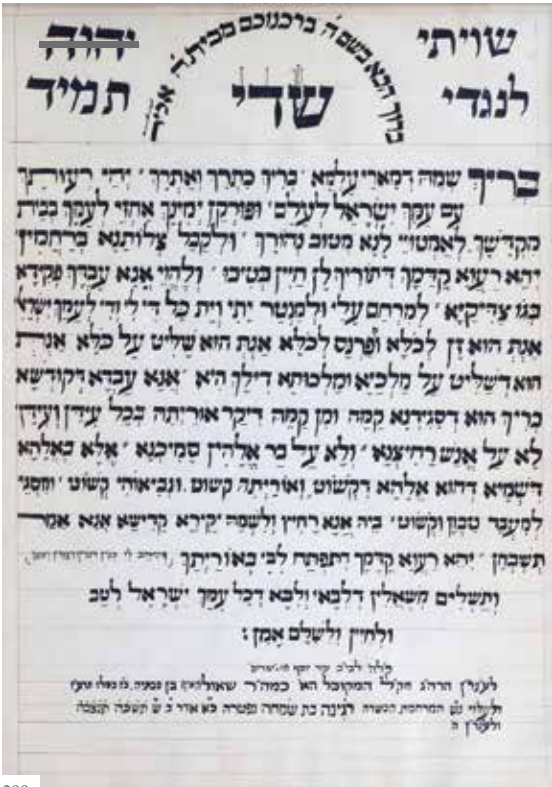 שויתי יהוה
ברוך הבא בשם ה' ברכנוכם מבית ה' אליך
לנגדי שדי תמיד
בריך שמה דמארי עלמא בריך כתרך ואתרך יהי רעותך
עם עמך ישראל לעלם ופורקן ימינך אחזי לעמך בבית
מקדשך לאמטויי לנא מטוב נהורך ולקבל צלותנא ברחמין
יהא רעוא קדמך דתוריך לן חיין בטיבו ולהוי אנא עבדך פקידא
בגו צדיקיא למרחם עלי ולמנטר יתי וית כל די לי ודי לעמך ישראל
אנת הוא זן לכלא ומפרנס לכלא אנת הוא שליט על כלא אנת
הוא דשליט על מלכיא ומלכותא דילך היא אנא עבדא דקודשא
בריך הוא דסגידנא קמה ומן קמה דיקר אוריתה בכל עידן ועידן
לא על אנש רחיצנא ולא על בר אלהין סמיכנא אלא באלהא
דשמיא דהוא אלהא דקשוט ואוריתה קשוט ונביאוהי קשוט ומסגי
למעבד טבון וקשוט ביה אנא רחיץ ולשמה יקירא קדישא אנא אמר
תשבחן יהא רעוא קדמך דתפתח לבי באוריתך
ותשלים משאלין דלבאי ולבא דכל עמך ישראל לטב
ולחיין ולשלם אמן:
לעט"ר הרה"ג המקובל הא' כמה"ר שאול בן
ולעילוי נש המרחמת הכשרה רגינה בת שמחה נפטרה כא אדר ב ש תשכה תנצבה